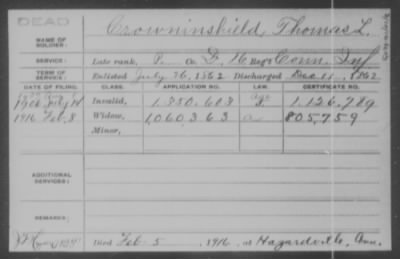 DEAD
NAME OF SOLDIER: Crowninshield, Thomas L.
SERVICE: Late rank, P. Co. D, 16 Reg't Conn. Inf
TERM OF SERVICE: Enlisted July 26, 1862 Discharged Dec 11, 1862
DATE OF FILING. CLASS. APPLICATION NO. LAW. CERTIFICATE NO.
Invalid, 1.126.789
1916 Feb. 8 Widow, 1,060,363 a 805,759
Minor,
ADDITIONAL SERVICES:
REMARKS:
Died Feb. 5, 1916, at Hazardville, Conn.